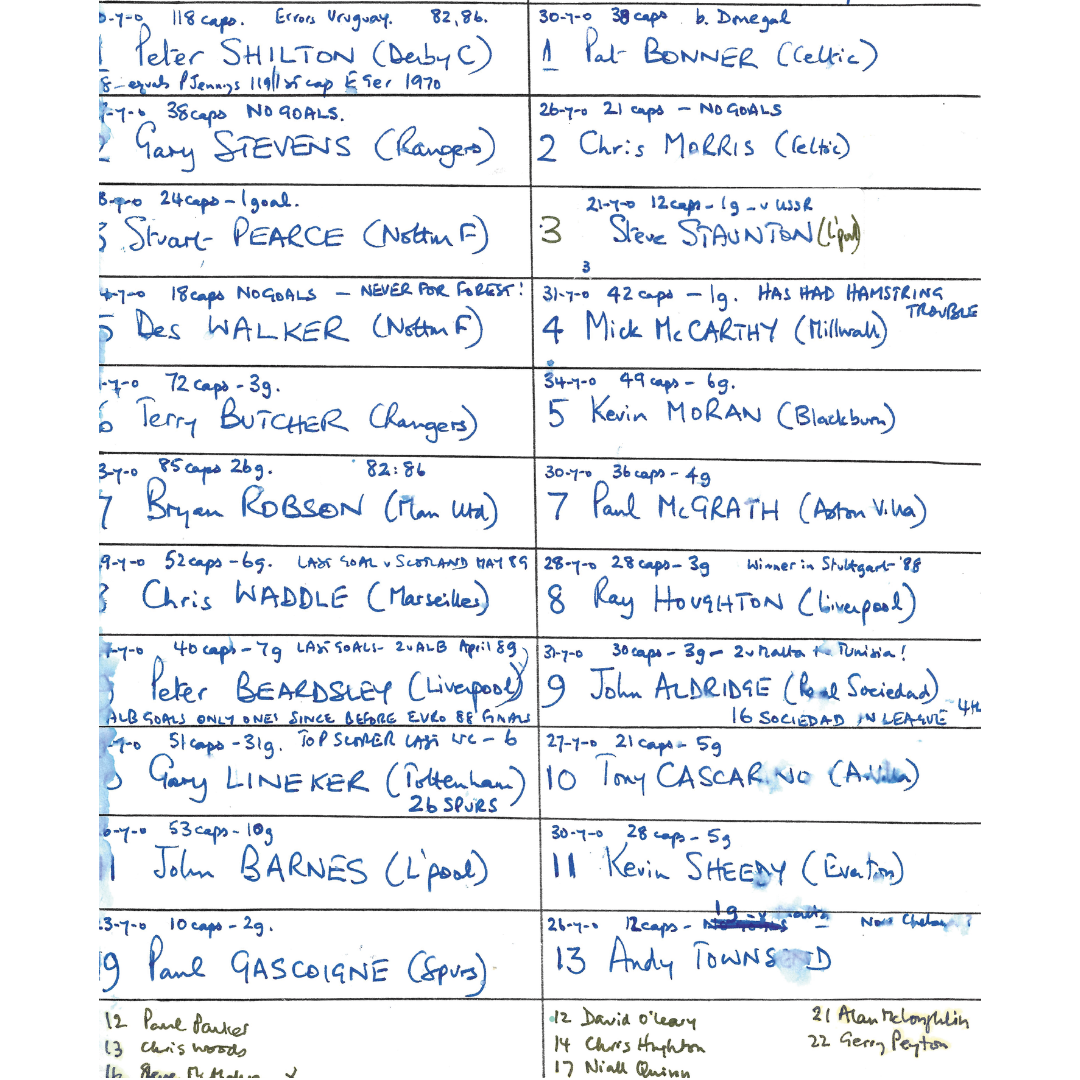 118 caps. Errors Uruguay. 82, 86.
1 Peter SHILTON (Derby C)
8 - equals P Jennings 119 / 1st cap E Ger 1970
38 caps NO GOALS.
2 Gary STEVENS (Rangers)
24 caps - 1 goal.
3 Stuart PEARCE (Nottm F)
18 caps NO GOALS - NEVER FOR FOREST!
5 Des WALKER (Nottm F)
72 caps - 3g.
6 Terry BUTCHER (Rangers)
85 caps 26g. 82:86
7 Bryan ROBSON (Man Utd)
9-7-0 52 caps - 6g. LAST GOAL v SCOTLAND MAY 89
8 Chris WADDLE (Marseilles)
40 caps - 7g LAST GOALS - 2 v ALB April 89
Peter BEARDSLEY (Liverpool)
ALB GOALS ONLY ONES SINCE BEFORE EURO 88 FINALS
51 caps - 31g. TOP SCORER LAST WC - 6
Gary LINEKER (Tottenham)
26 SPURS
53 caps - 10g
11 John BARNES (L'pool)
3-7-0 10 caps - 2g.
19 Paul GASCOIGNE (Spurs)
12 Paul Parker
13 Chris Woods
30-7-0 38 caps b. Donegal
1 Pat BONNER (Celtic)
26-7-0 21 caps - NO GOALS
2 Chris MORRIS (Celtic)
21-7-0 12 caps - 1g - v USSR
3 Steve STAUNTON (L'pool)
3
31-7-0 42 caps - 1g. HAS HAD HAMSTRING TROUBLE
4 Mick McCARTHY (Millwall)
34-7-0 49 caps - 6g.
5 Kevin MORAN (Blackburn)
30-7-0 36 caps - 4g
7 Paul McGRATH (Aston Villa)
28-7-0 28 caps - 3g Winner in Stuttgart '88
8 Ray HOUGHTON (Liverpool)
31-7-0 30 caps - 3g - 2 v Malta + Tunisia!
9 John ALDRIDGE (Real Sociedad)
16 SOCIEDAD IN LEAGUE - 4th
27-7-0 21 caps - 5g
10 Tony CASCARINO (A. Villa)
30-7-0 28 caps - 5g
11 Kevin SHEEDY (Everton)
26-7-0 12 caps - 1g - v
13 Andy TOWNSEND
12 David O'Leary
14 Chris Hughton
17 Niall Quinn
21 Alan McLoughlin
22 Gerry Peyton